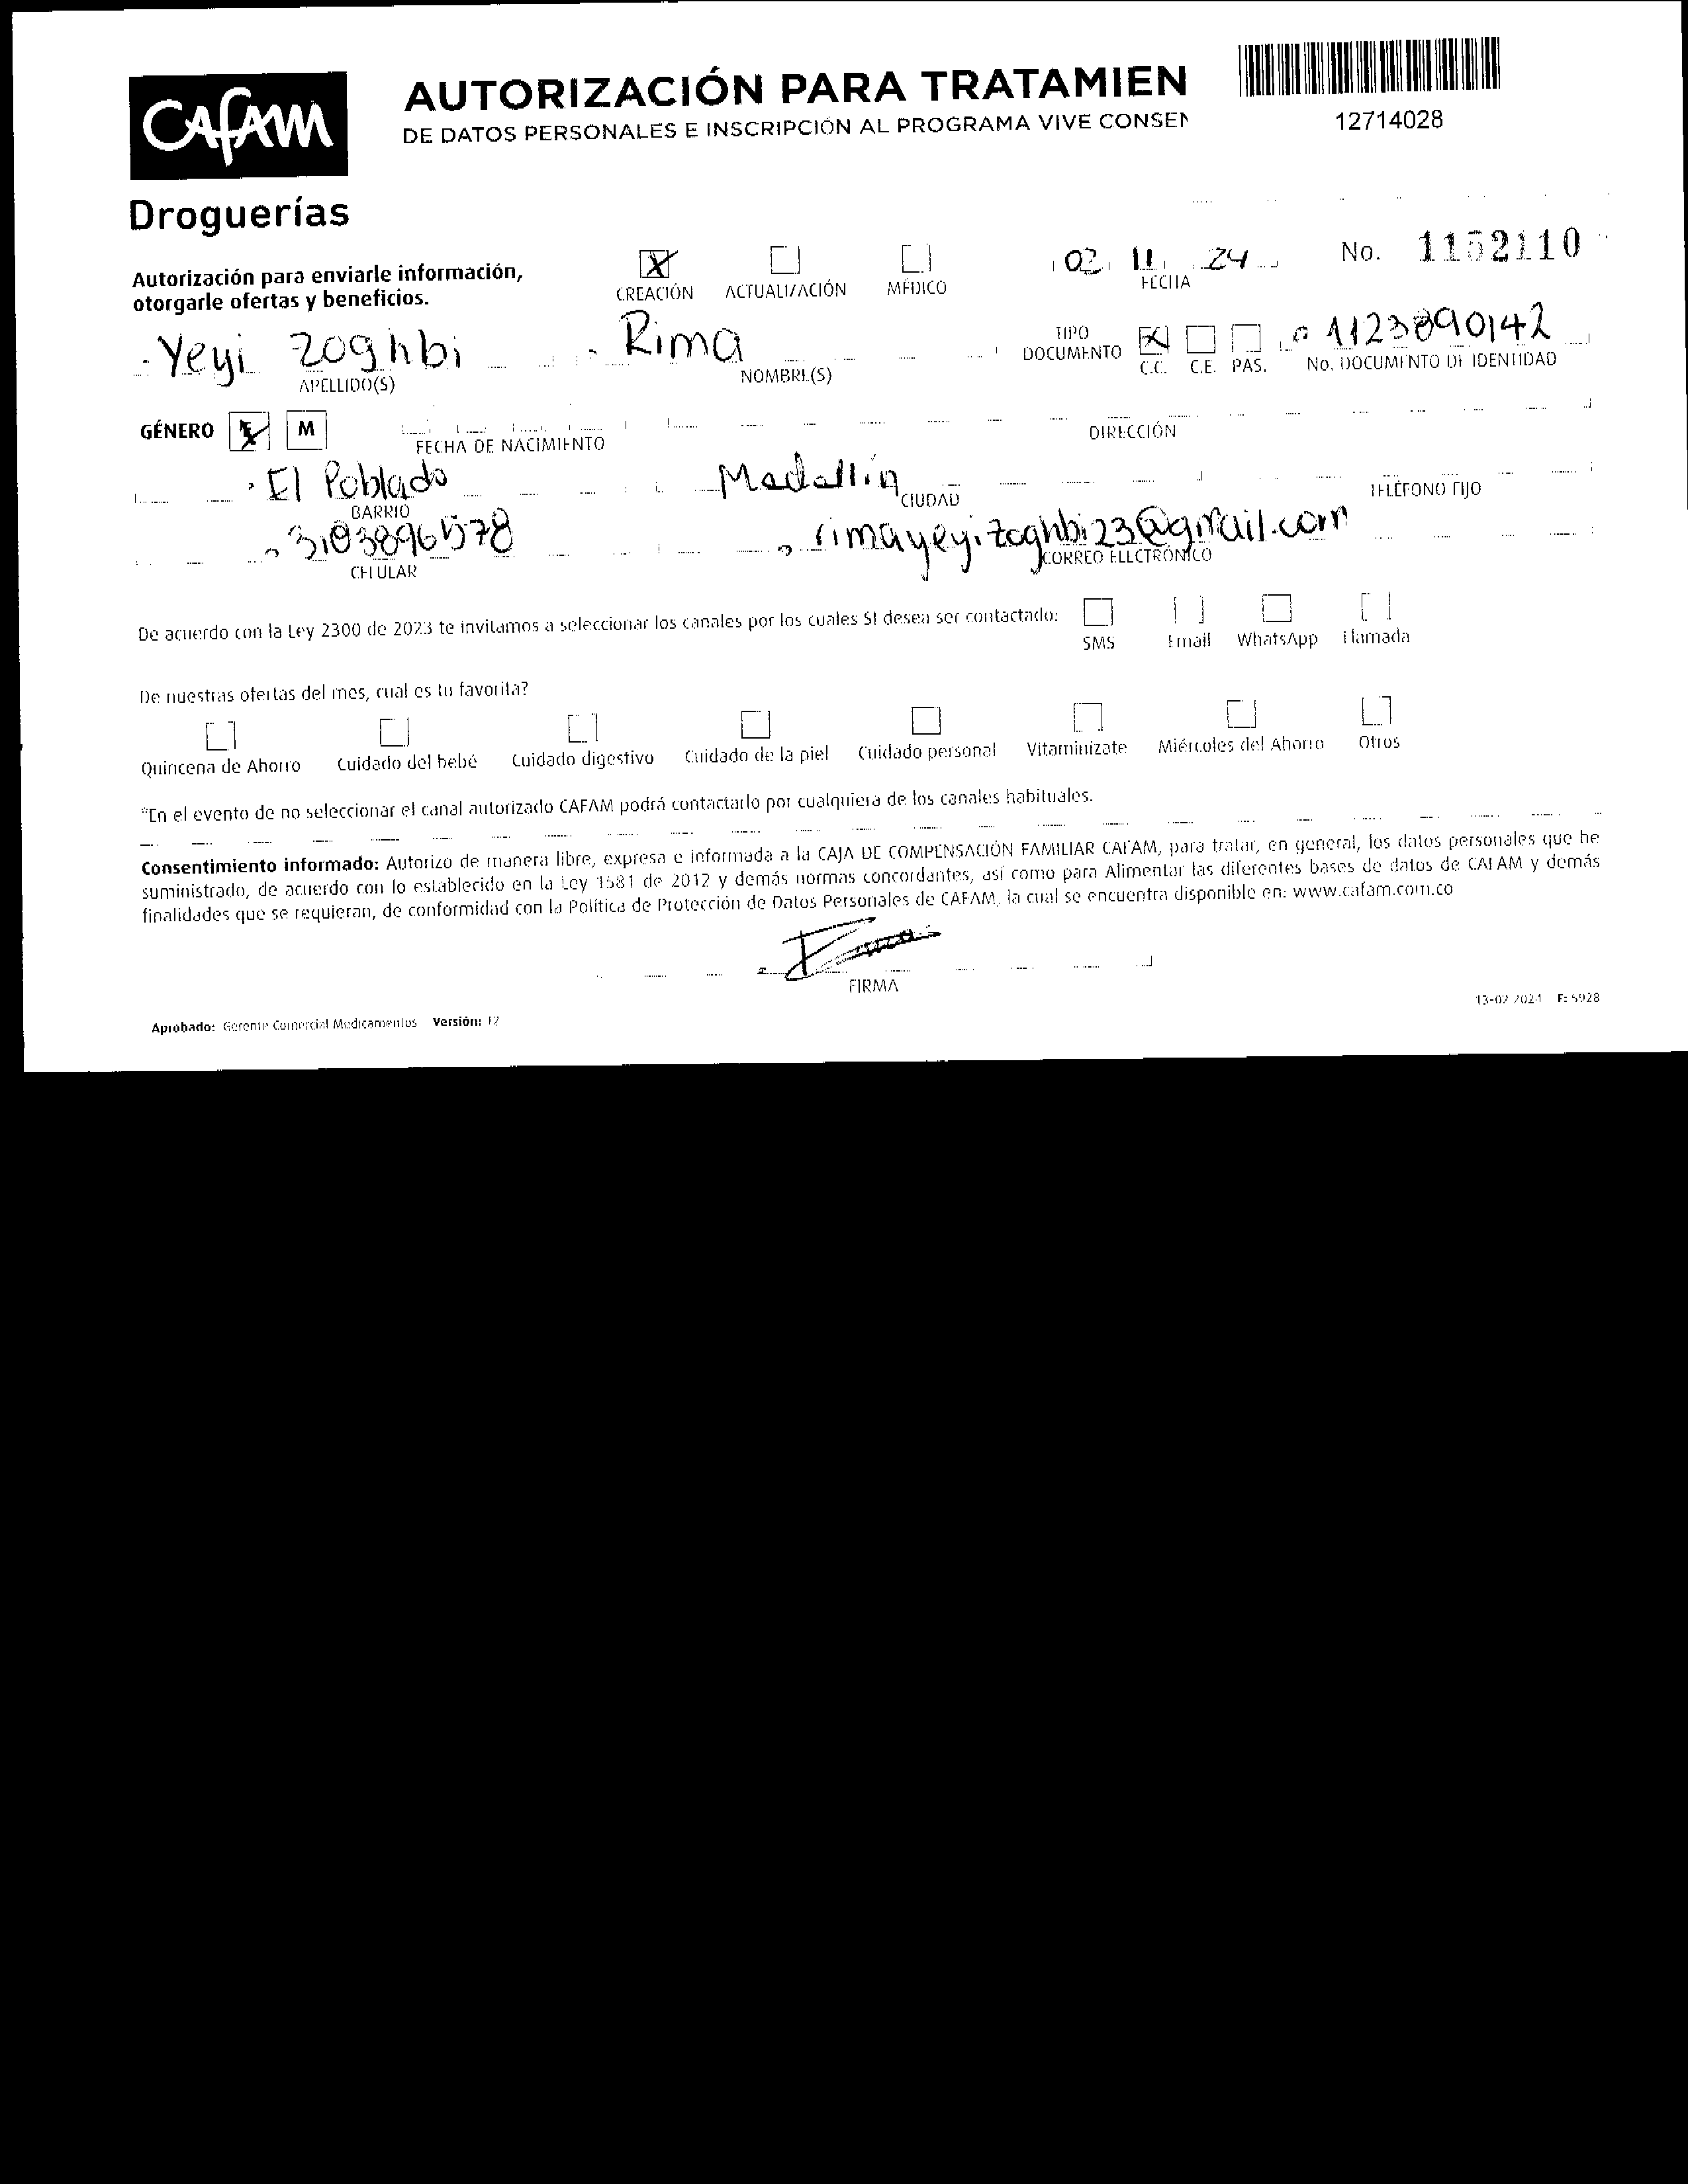 CAFAM
Droguerías
AUTORIZACIÓN PARA TRATAMIEN
DE DATOS PERSONALES E INSCRIPCIÓN AL PROGRAMA VIVE CONSEN
12714028
Autorización para enviarle información,
otorgarle ofertas y beneficios.
X CREACIÓN ACTUALIZACIÓN MÉDICO
02 11 24 FECHA
No. 1152110
Yeyi Zoghbi
APELLIDO(S)
Rima
NOMBRE(S)
TIPO DOCUMENTO X C.C. C.E. PAS.
1123890142
No. DOCUMENTO DE IDENTIDAD
GÉNERO F X M
FECHA DE NACIMIENTO
DIRECCIÓN
El Poblado
BARRIO
Medellín
CIUDAD
TELÉFONO FIJO
3103896578
CELULAR
rimayeyizoghbi23@gmail.com
CORREO ELECTRÓNICO
De acuerdo con la Ley 2300 de 2023 te invitamos a seleccionar los canales por los cuales SI desea ser contactado: SMS Email WhatsApp Llamada
De nuestras ofertas del mes, cual es tu favorita?
Quincena de Ahorro Cuidado del bebé Cuidado digestivo Cuidado de la piel Cuidado personal Vitaminízate Miércoles del Ahorro Otros
*En el evento de no seleccionar el canal autorizado CAFAM podrá contactarlo por cualquiera de los canales habituales.
Consentimiento informado: Autorizo de manera libre, expresa e informada a la CAJA DE COMPENSACIÓN FAMILIAR CAFAM, para tratar, en general, los datos personales que he
suministrado, de acuerdo con lo establecido en la Ley 1581 de 2012 y demás normas concordantes, así como para Alimentar las diferentes bases de datos de CAFAM y demás
finalidades que se requieran, de conformidad con la Política de Protección de Datos Personales de CAFAM, la cual se encuentra disponible en: www.cafam.com.co
FIRMA
Aprobado: Gerente Comercial Medicamentos Versión: 12
13-02-2024 F: 5928